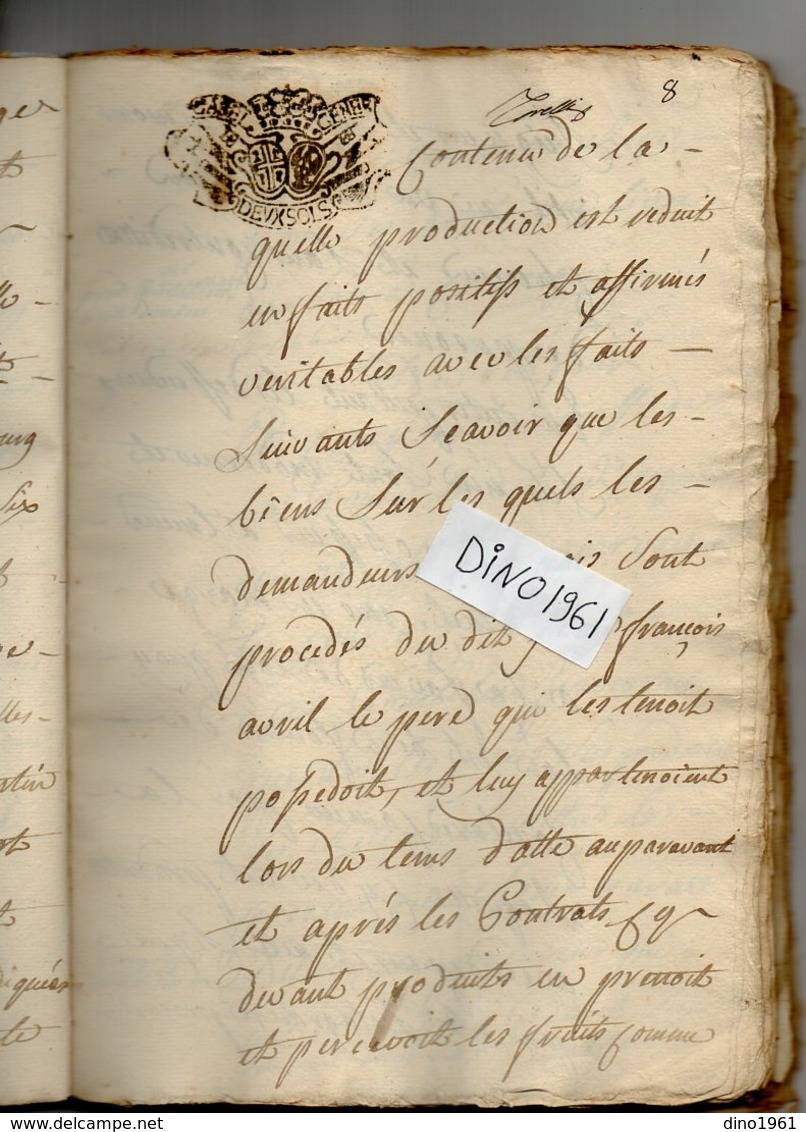 8
GABEL GENER
DEUX SOLS
Contenu de la -
quelle production est reduit
en faits positifs et affirmés
veritables avec les faits -
Suivants Scavoir que les -
biens Sur les quels les -
demandeurs Sont
procedés du dit françois
avril le pere qui les tenoit
possedoit, et luy appartenoient
lors du tems d'atte auparavant
et aprés les Contrats cy
devant produits en prenoit
et percevoit les fruits comme
DINO1961
ger
t
lo -
Six
lles -
rtin
t
diquées
te
dino1961